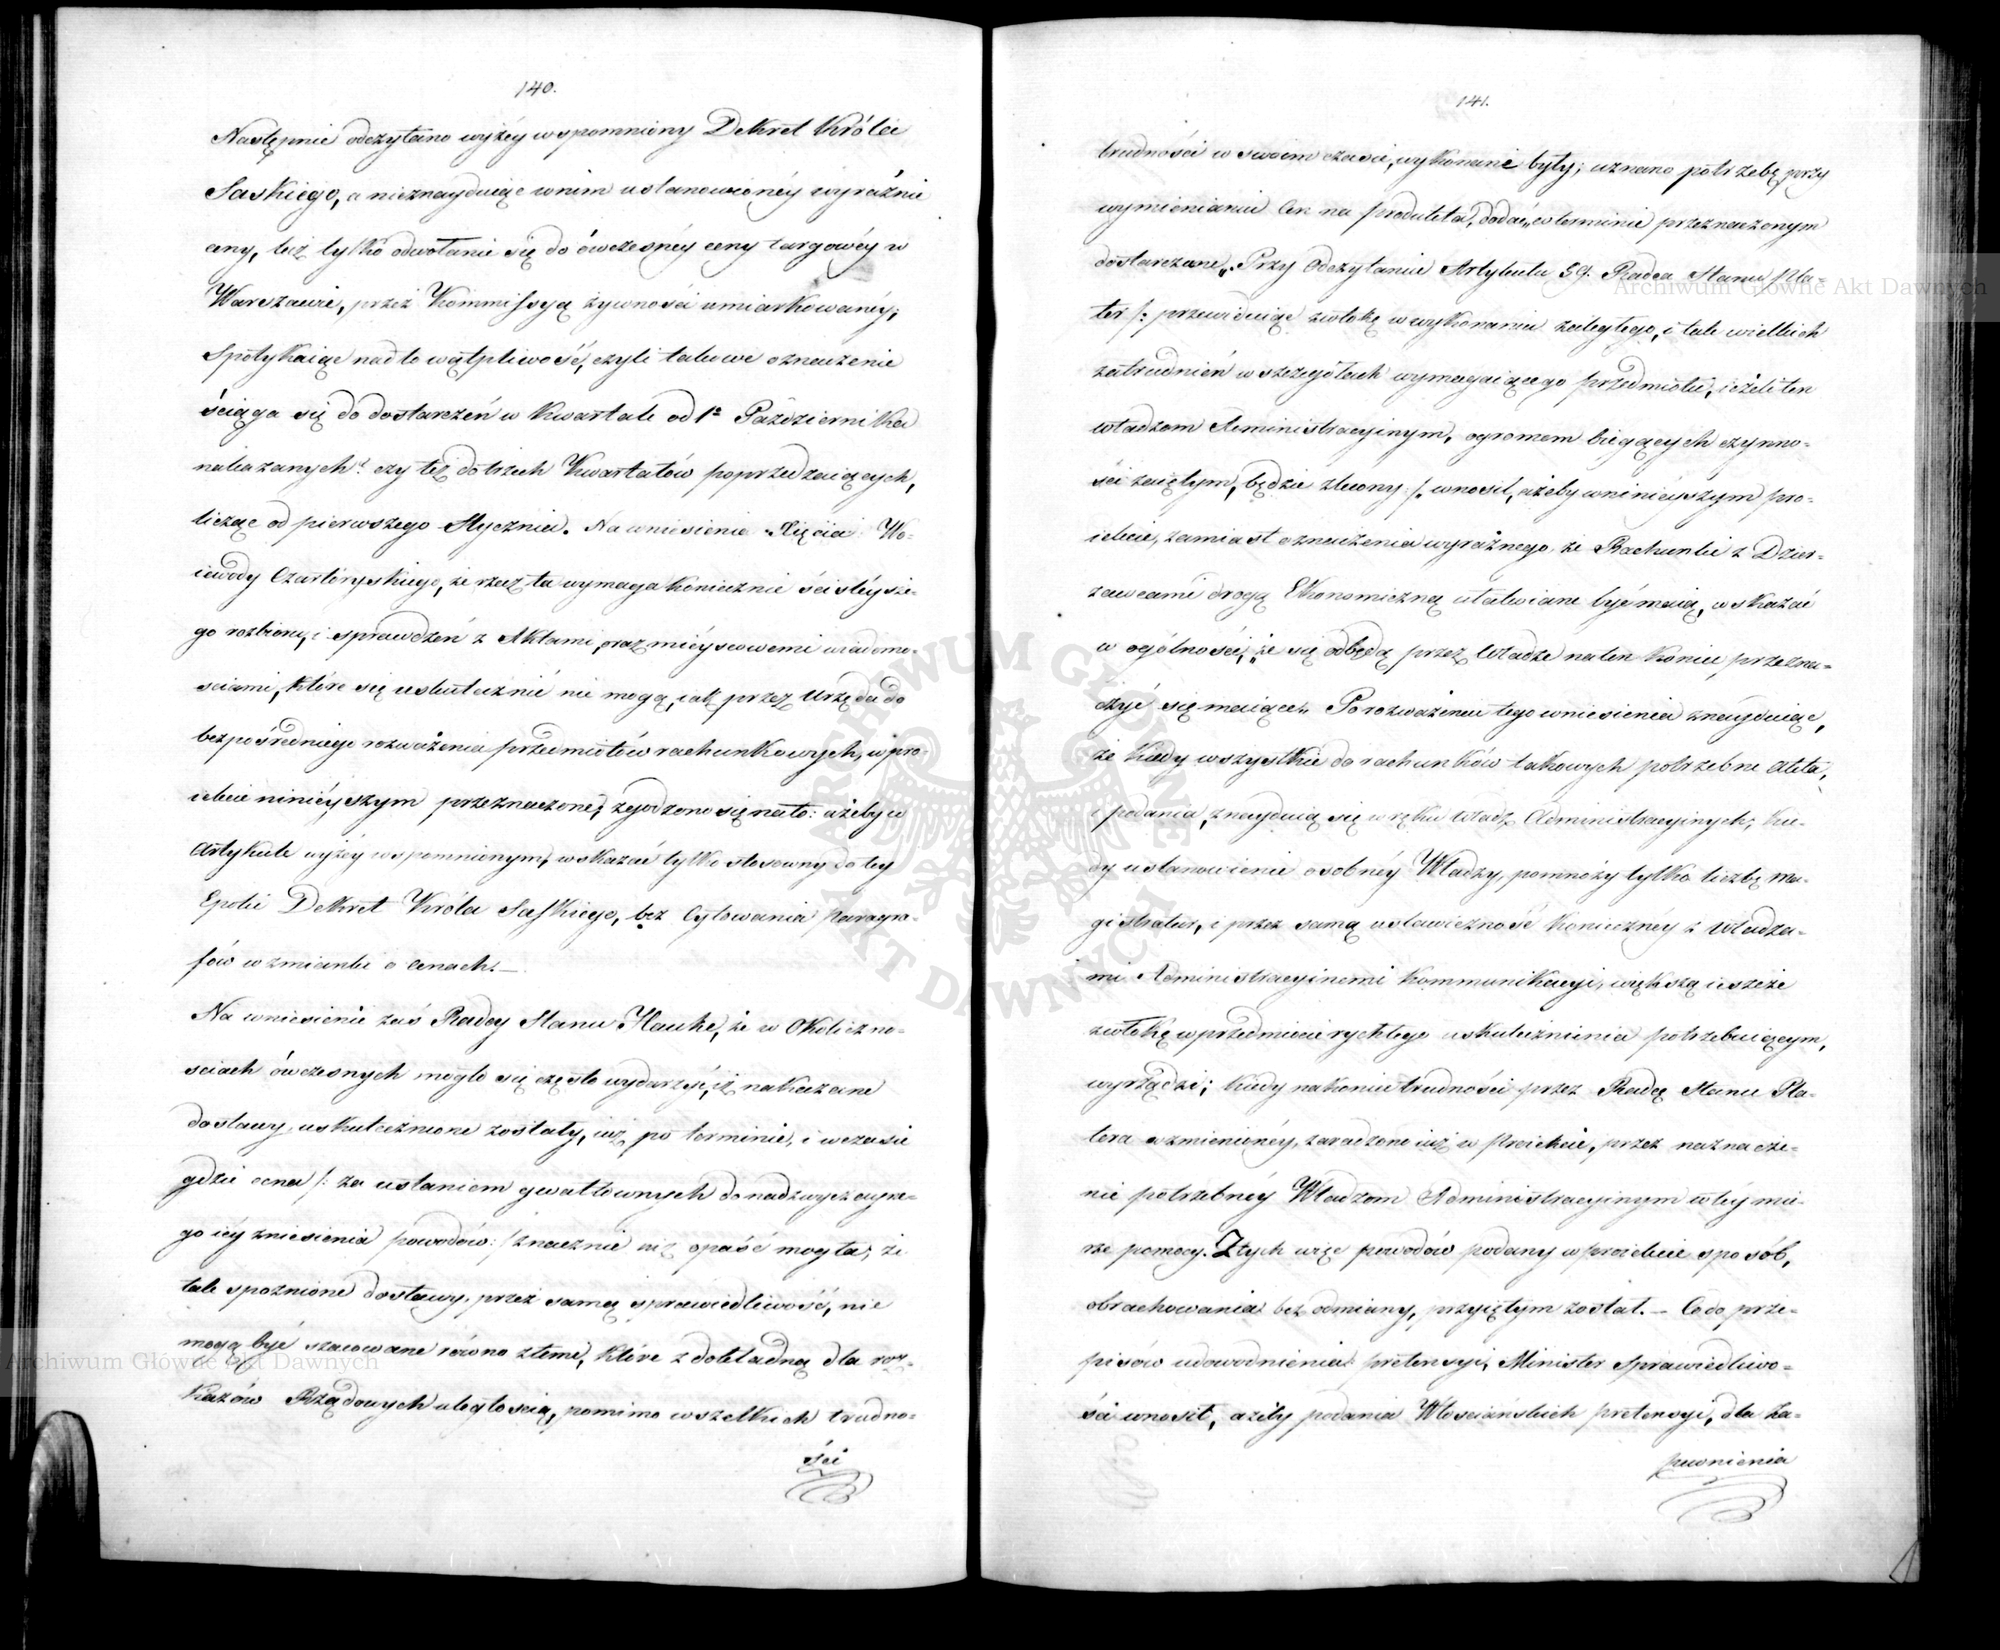 140.
Następnie odczytano wyżéy wspomniony Dekret Króla
Saskiego, a nieznayduiąc w nim ustanowionéy wyraźnie
ceny, lecz tylko odwołanie się do ówczesnéy ceny targowéy w
Warszawie, przez Kommissyą żywności umiarkowanéy;
Spotykaiąc nadto wątpliwość, czyli takowe oznaczenie
ściąga się do dostarczeń w Kwartale od 1º Października
nakazanych? czy też do trzech Kwartałów poprzedzaiących,
licząc od pierwszego Stycznia. Na wniesienie Xięcia Wo-
iewody Czartoryskiego, że rzecz ta wymaga koniecznie ściśléysze-
go rozbioru, i sprawdzeń z Aktami, oraz mieyscowemi wiadomo-
sciami, które się uskutecznić nie mogą, iak przez Urzęda do
bezpośredniego rozważenia przedmiotów rachunkowych, w pro-
iekcie ninieyszym przeznaczone; zgodzono się na to: ażeby w
Artykule wyżey wspomnionym, wskazać tylko stosowny do tey
Epoki Dekret Króla Saskiego, bez Cytowania Paragra-
fów wzmianki o cenach. —
Na wniesienie zaś Radcy Stanu Hauke, że w Okoliczno-
sciach ówczesnych mogło się często wydarzyć, iż nakazane
dostawy uskutecznione zostały, iuż po terminie, i w czasie
gdzie cena /: za ustaniem gwałtownych do nadzwyczayne-
go iéy zniesienia powodów :/ znacznie niż opaść mogła; że
takie spoznione dostawy, przez samą sprawiedliwość, nie
mogą być szacowane równo z temi, które z dokładną dla roz-
kazów Rządowych uległoscią, pomimo wszelkich trudno-
ści
141.
trudności w swoim czasie, wykonane były; uznano potrzebę przy
wymienianiu Cen na produkta, dodać „w terminie przeznaczonym
dostarczane„. Przy Odczytaniu Artykułu 59. Radca Stanu Pla-
ter /: przewiduiąc zwłokę w wykonaniu zaległego, i tak wielkich
zatrudnień w szczegółach wymagaiącego przedmiotu, ieżeli ten
władzom Administracyinym, ogromem bieżących czynno-
ści zaiętym, będzie zlecony :/ wnosił, ażeby w ninieyszym pro-
iekcie, zamiast oznaczenia wyraźnego że Rachunki z Dzier-
zawcami drogą Ekonomiczną ułatwiane być maią, wskazać
w ogólności, „że się odbędą przez Władze na ten koniec przezna-
czyć się maiące„ Po rozważeniu tego wniesienia znayduiąc,
że kiedy wszystkie do rachunków takowych potrzebne Akta,
i podania, znayduią się w ręku Władz Administracyinych; kie-
dy ustanowienie osobnéy Władzy, pomnoży tylko liczbę Ma-
gistratur, i przez samą ustawiczność koniecznéy z Władza-
mi Administracyinemi kommunikacyi, większą ieszcze
zwłokę w przedmiocie rychłego uskutecznienia potrzebuiącym,
wyrządzi; kiedy nakoniec trudności przez Radcę Stanu Pla-
tera wzmienionéy, zaradzono iuż w Proiekcie, przez naznacze-
nie potrzebnéy Władzom Administracyinym w téy mie-
rze pomocy. Z tych więc powodów podany w proiekcie sposób,
obrachowania bez odmiany, przyiętym został. — Co do prze-
pisów udowodnienia pretensyi, Minister Sprawiedliwo-
ści wnosił, ażeby podania Włosciańskich pretensyi, dla Za-
pewnienia
Archiwum Główne Akt Dawnych
Archiwum Główne Akt Dawnych
ARCHIWUM GŁÓWNE AKT DAWNYCH